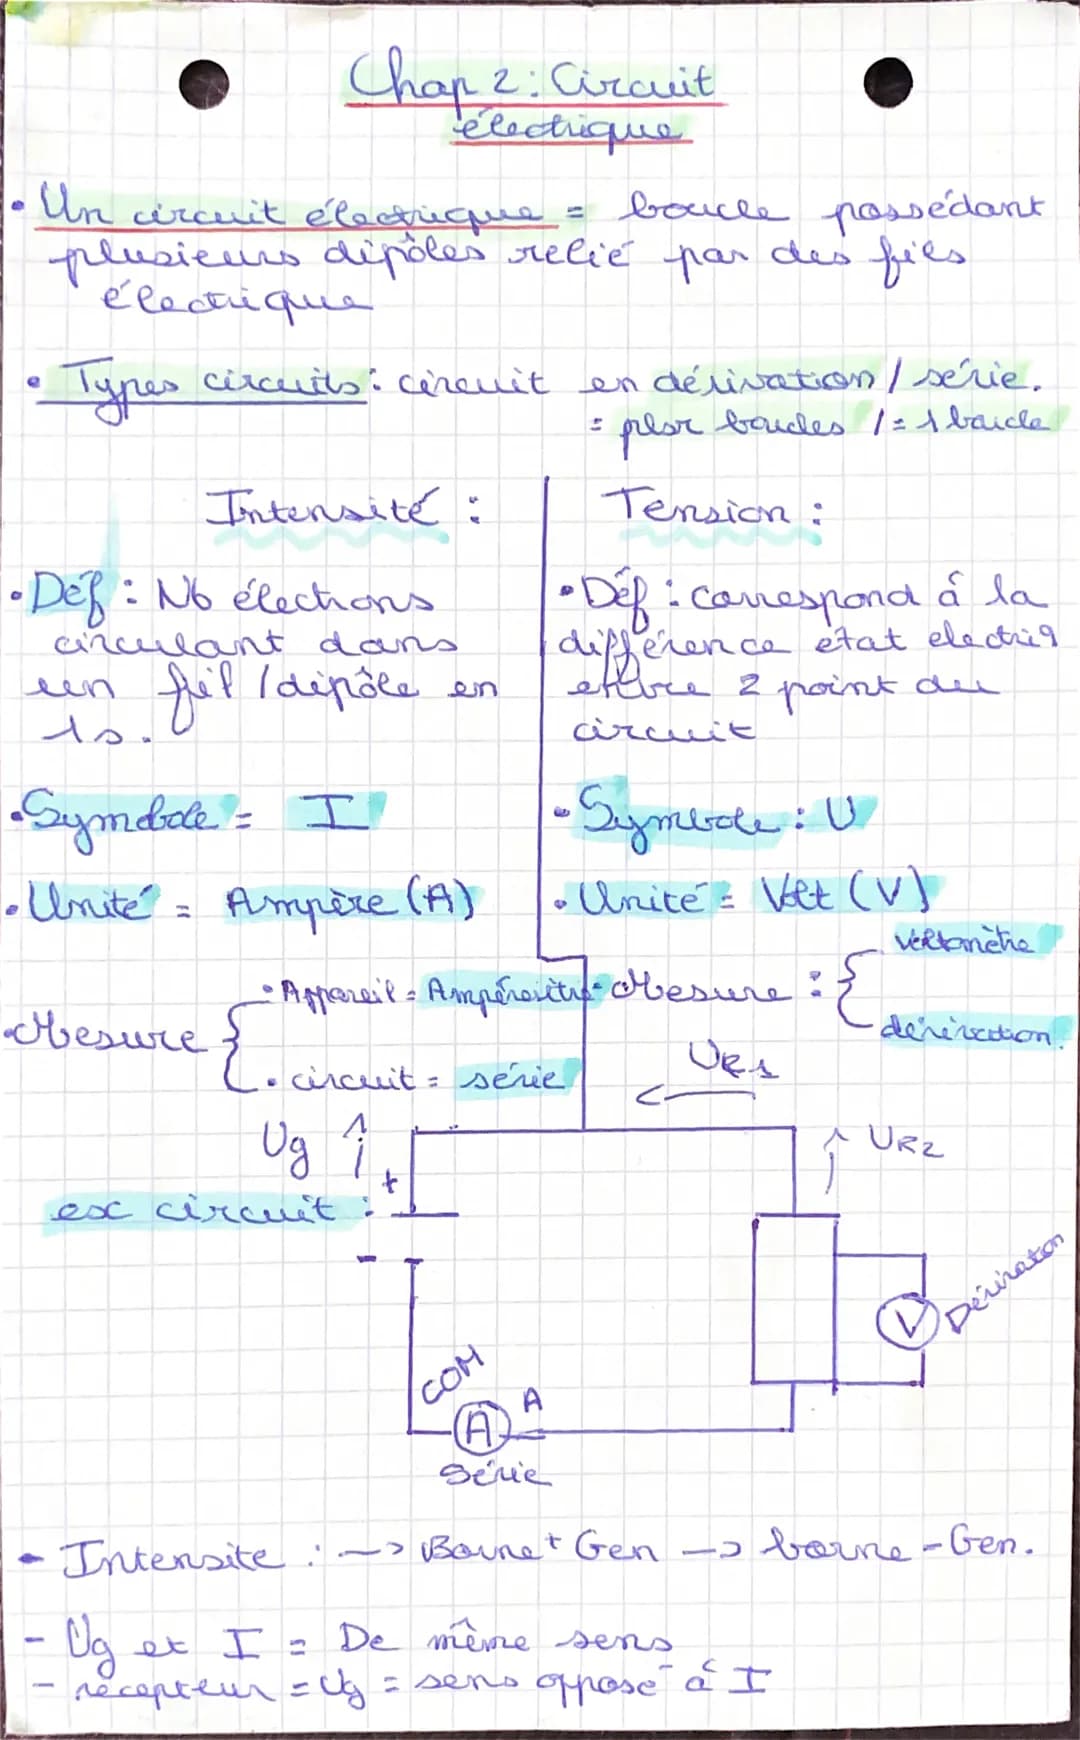 Chap 2 : Circuit
électrique
• Un circuit électrique = boucle possédant
plusieurs dipôles relié par des fils
électrique
• Types circuits : circuit en dérivation / série.
= plsr boucles / = 1 boucle
Intensité :
• Déf : Nb électrons
circulant dans
un fil / dipôle en
1s.
• Symbole = I
• Unité = Ampère (A)
• Mesure {
• Appareil = Ampèremètre
• circuit = série
Tension :
• Déf : correspond á la
différence état electriq
entre 2 point du
circuit
• Symbole : U
• Unité = Volt (V)
• Mesure : {
voltmètre
dérivation.
UR1
Ug
UR2
ex circuit :
+
-
COM
A
A
Série
V
Dérivation
- Intensite : -> Borne + Gen -> borne - Gen.
- Ug et I = De même sens
- récepteur = Ug = sens opposé á I